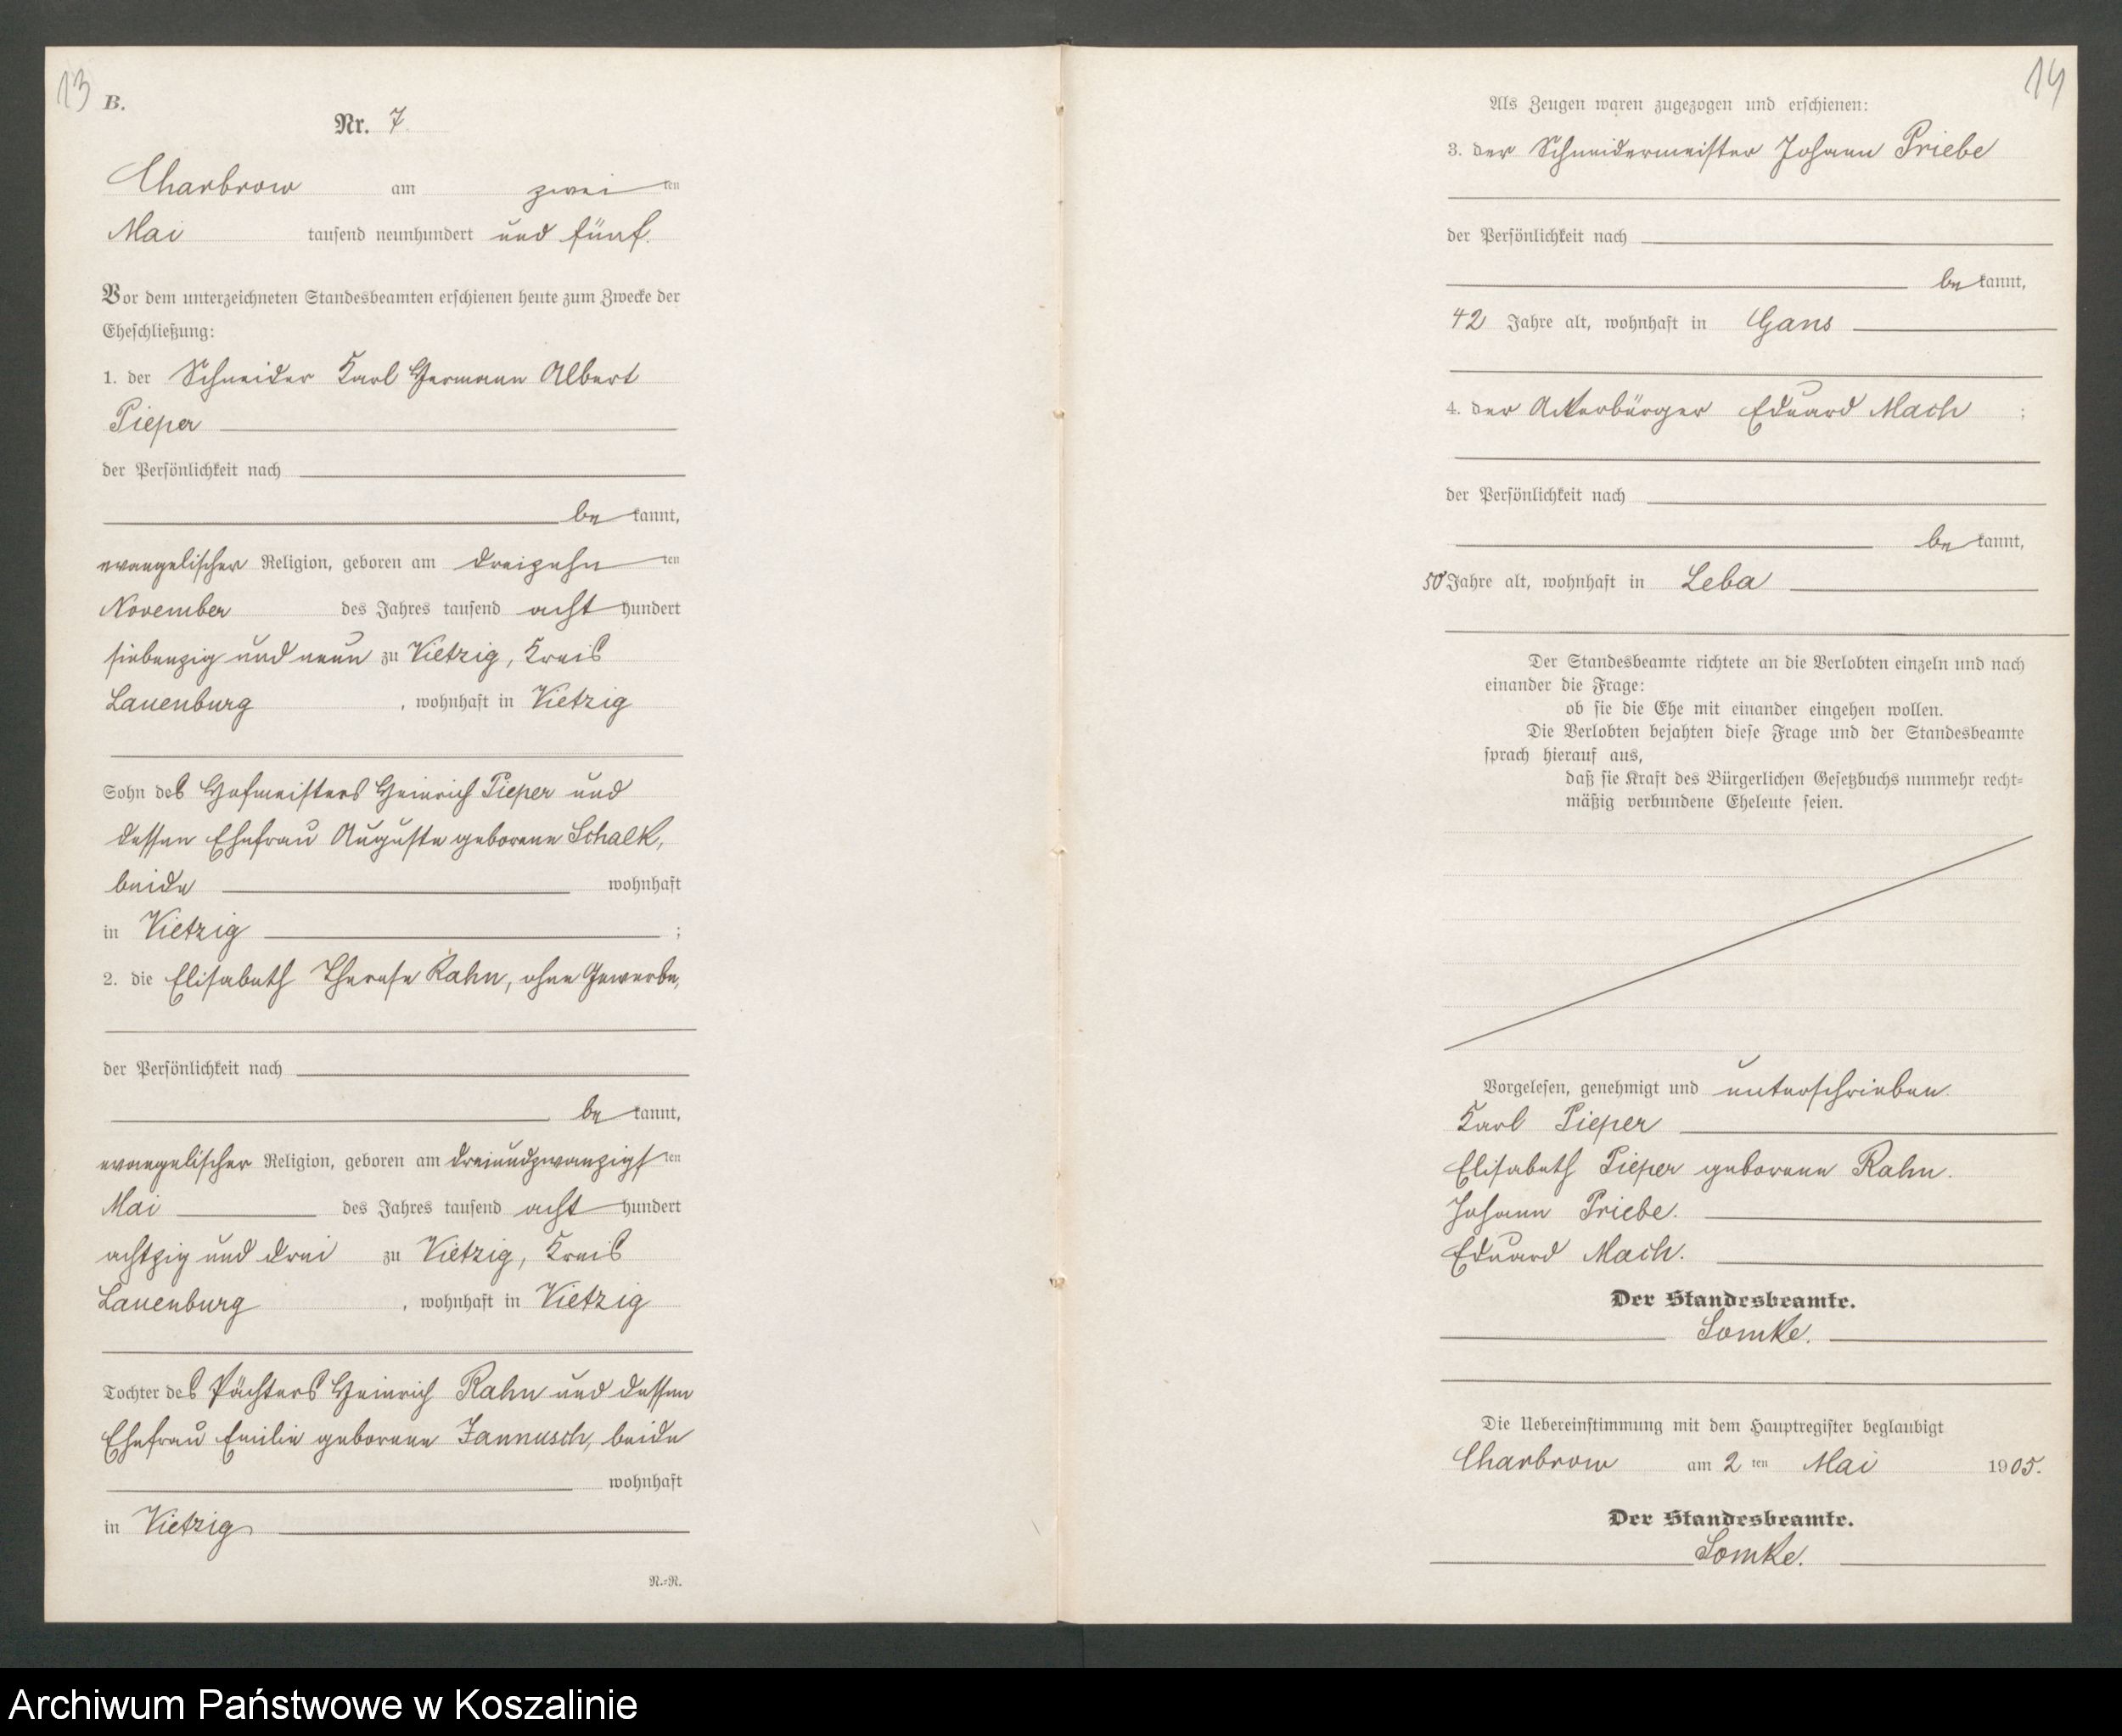 13
B.
Nr. 7.
Charbrow am zweiten
Mai tausend neunhundert und fünf.
Vor dem unterzeichneten Standesbeamten erschienen heute zum Zwecke der
Eheschließung:
1. der Schneider Karl Hermann Albert
Pieper
der Persönlichkeit nach
bekannt,
evangelischer Religion, geboren am dreizehnten
November des Jahres tausend achthundert
siebenzig und neun zu Vietzig, Kreis
Lauenburg, wohnhaft in Vietzig
Sohn des Hofmeisters Heinrich Pieper und
dessen Ehefrau Auguste geborene Schalk,
beide wohnhaft
in Vietzig ;
2. die Elisabeth Therese Rahn, ohne Gewerbe,
der Persönlichkeit nach
bekannt,
evangelischer Religion, geboren am dreiundzwanzigsten
Mai des Jahres tausend achthundert
achtzig und drei zu Vietzig, Kreis
Lauenburg, wohnhaft in Vietzig
Tochter des Pächters Heinrich Rahn und dessen
Ehefrau Emilie geborene Jannusch, beide
wohnhaft
in Vietzig
N.=N.
14
Als Zeugen waren zugezogen und erschienen:
3. der Schneidermeister Johann Priebe
der Persönlichkeit nach
bekannt,
42 Jahre alt, wohnhaft in Gans
4. der Ackerbürger Eduard Mach ;
der Persönlichkeit nach
bekannt,
50 Jahre alt, wohnhaft in Leba
Der Standesbeamte richtete an die Verlobten einzeln und nach
einander die Frage:
ob sie die Ehe mit einander eingehen wollen.
Die Verlobten bejahten diese Frage und der Standesbeamte
sprach hierauf aus,
daß sie Kraft des Bürgerlichen Gesetzbuchs nunmehr recht=
mäßig verbundene Eheleute seien.
Vorgelesen, genehmigt und unterschrieben.
Karl Pieper
Elisabeth Pieper geborene Rahn.
Johann Priebe.
Eduard Mach.
Der Standesbeamte.
Lomke.
Die Uebereinstimmung mit dem Hauptregister beglaubigt
Charbrow am 2ten Mai 1905.
Der Standesbeamte.
Lomke.
Archiwum Państwowe w Koszalinie